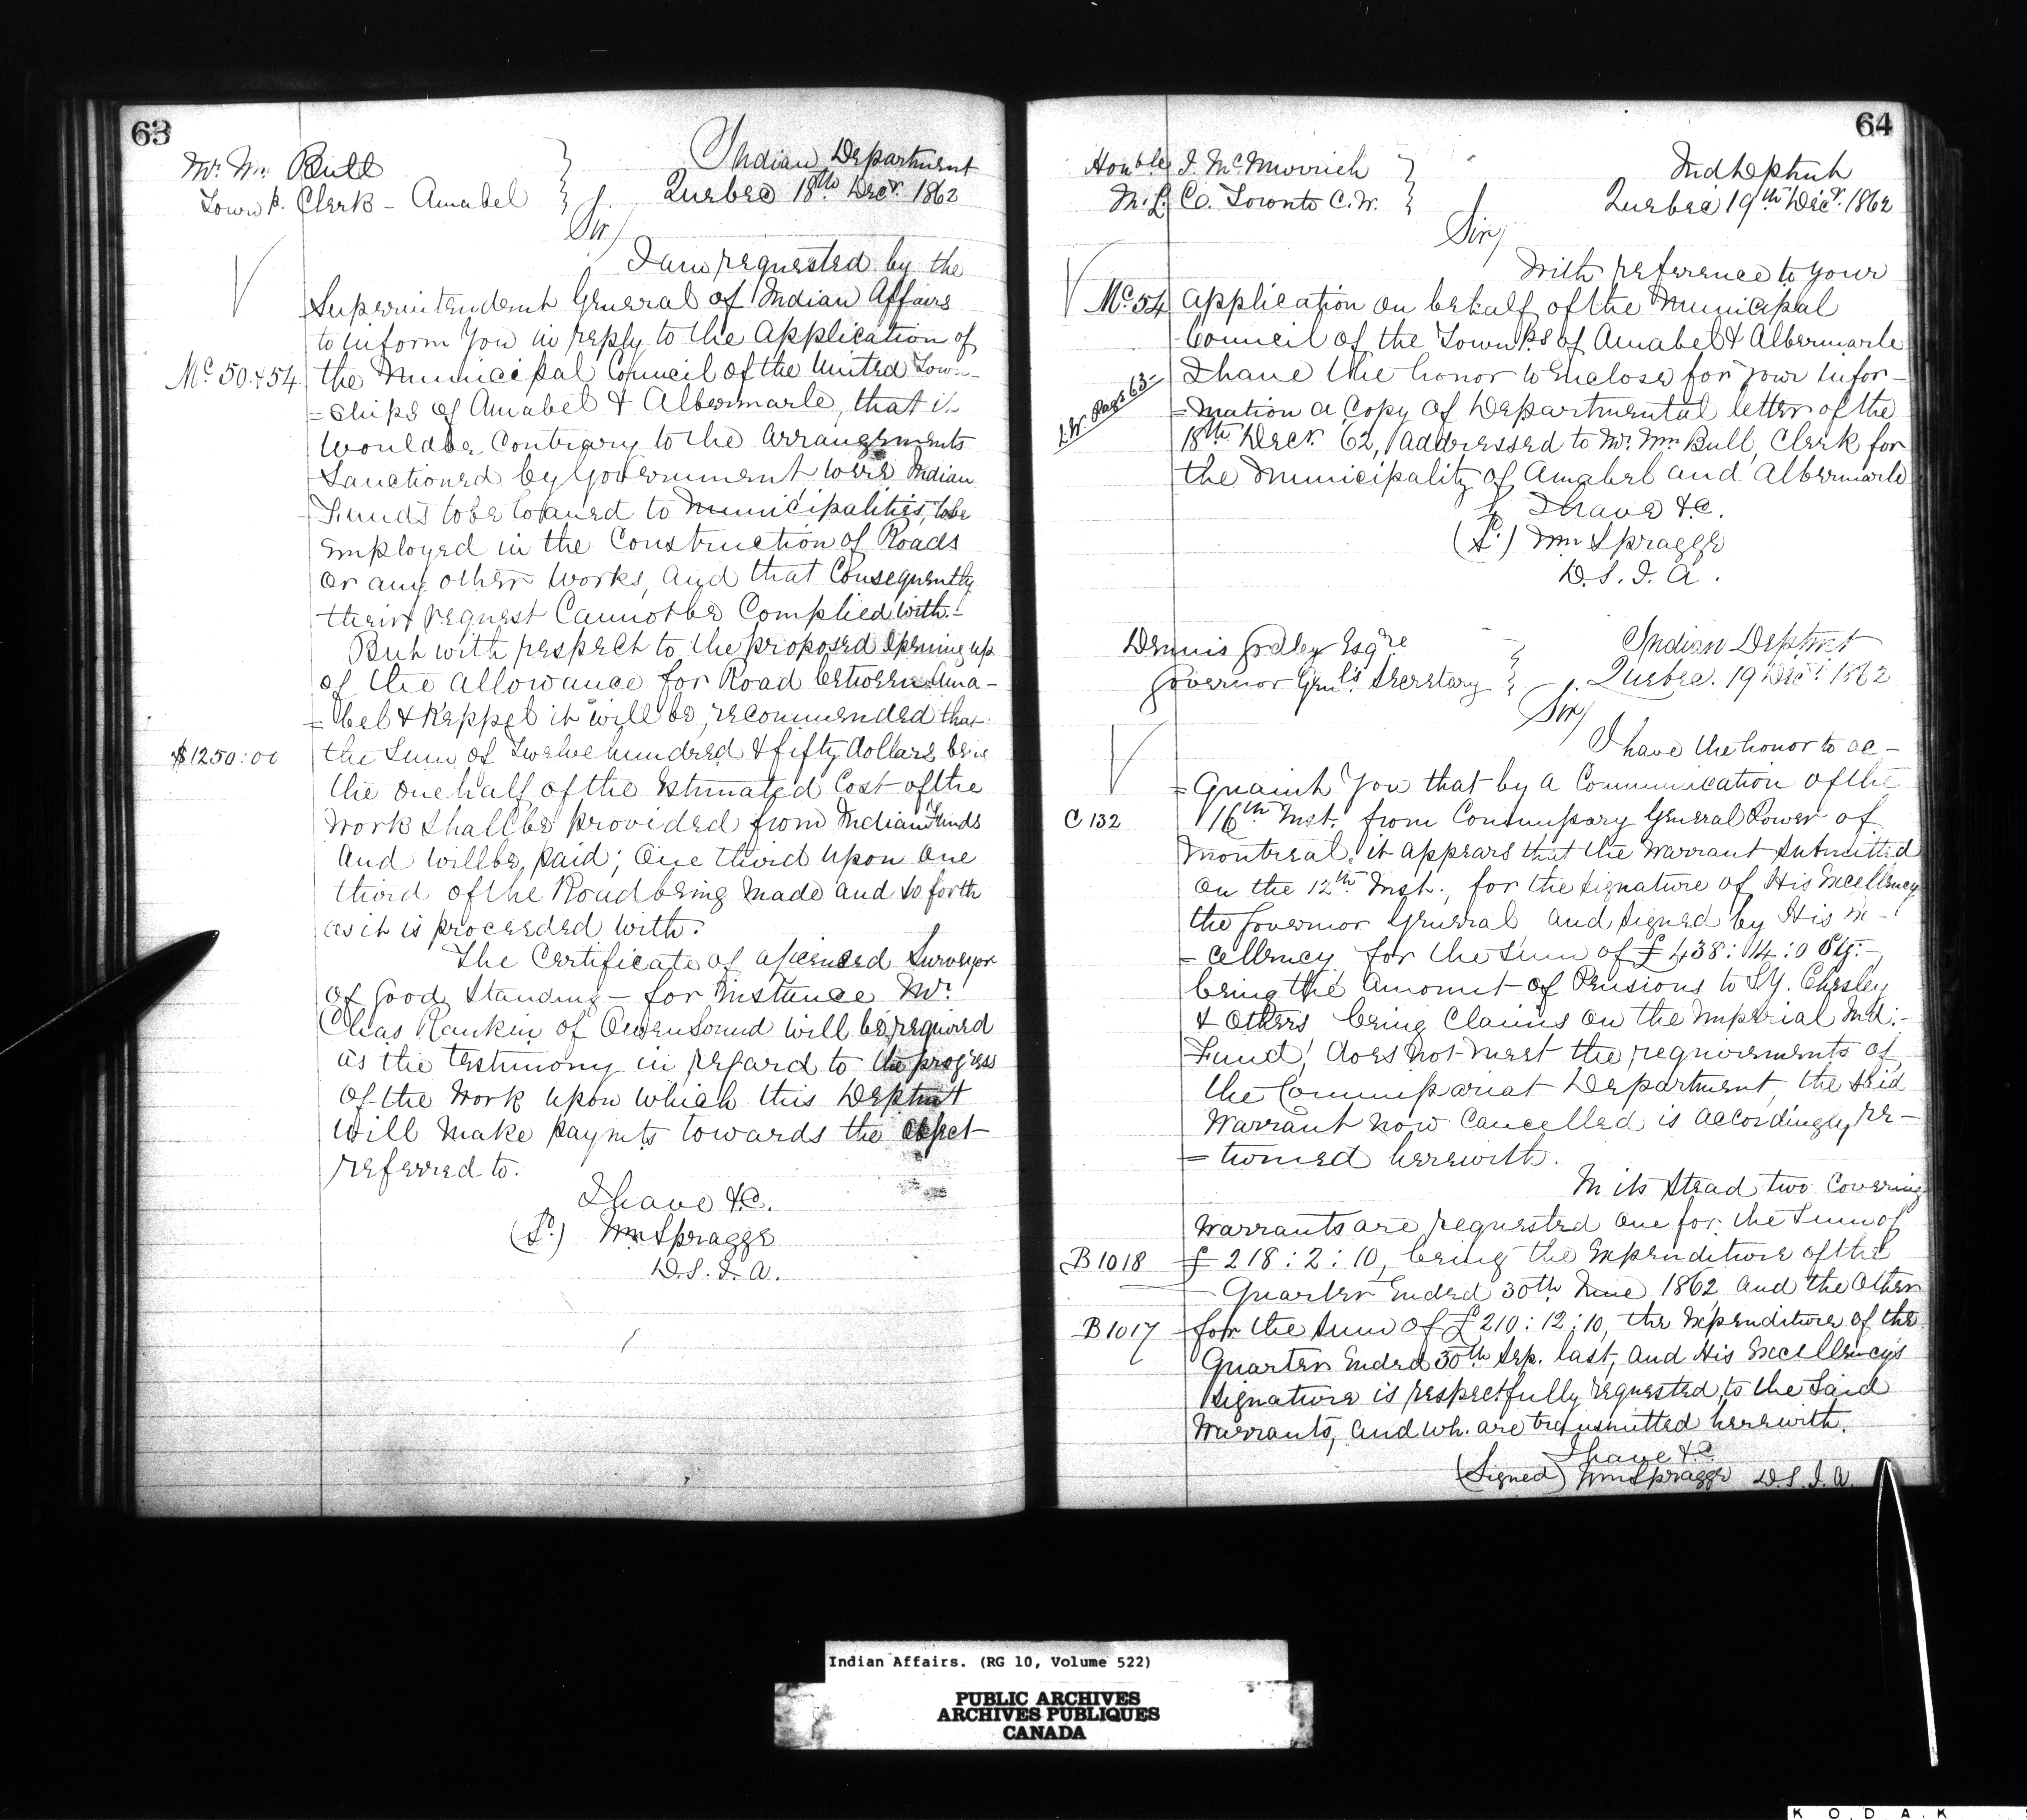 63
Mr. Wm. Bull
Townp. Clerk - Amabel
Indian Department
Quebec 18th Decr. 1862
Sir/
I am requested by the
Superintendent General of Indian Affairs
to inform You in reply to the Application of
Mc. 50 & 54
the Municipal Council of the United Town-
=ships of Amabel & Albermarle, that it
would be Contrary to the Arrangements
Sanctioned by Government were Indian
Funds to be loaned to Municipalities, to be
employed in the Construction of Roads
or any other Works, and that Consequently
their request Cannot be Complied with.-
But with respect to the proposed Opening up
of the Allowance for Road between Ama-
=bel & Keppel it will be, recommended that
$1250:00
the Sum of Twelve hundred & fifty dollars being
the one half of the Estimated Cost of the
Work shall be provided from Indian Funds
And will be, paid; One third upon One
third of the Road being Made and so forth
as it is proceeded with.
The Certificate of a licensed Surveyor
of Good Standing - for instance Mr.
Chas Rankin of Owen Sound will be required
as the testimony in regard to the progress
of the Work upon which this Deptmt
will Make paymts towards the object
referred to.
I have &c.
(Sd.) Wm Spragge
D.S.I.A.
64
Honble J. McMurrich
M.L.C. Toronto C.W.
Ind Deptmt
Quebec 19th Decr. 1862
Sir/
With reference to your
Mc. 54
Application on behalf of the Municipal
Council of the Townps of Amabel & Albermarle
I have the honor to Enclose for your infor-
L.W. Page 63-
=mation a Copy of Departmental letter of the
18th Decr. 62, addressed to Mr. Wm Bull, Clerk for
the Municipality of Amabel and Albermarle
I have &c.
(Sd.) Wm Spragge
D.S.I.A.
Dennis Godley Esqre
Governor Genl's Secretary
Indian Deptmt
Quebec. 19 Decr. 1862
Sir/
I have the honor to ac-
=quaint You that by a Communication of the
C 132
16th Inst. from Commissary General Power of
Montreal, it appears that the Warrant submitted
on the 12th Inst., for the signature of His Excellency
the Governor General and signed by His Ex-
=cellency for the Sum of £438:14:0 Stg:-,
being the Amount of Pensions to S.Y. Chesley
& Others being Claims on the Imperial Ind:-
Fund, does not meet the requirements of
the Commissariat Department, the said
Warrant now Cancelled is accordingly re-
=turned herewith.
In its Stead two Covering
Warrants are requested One for the Sum of
B 1018
£218:2:10, being the Expenditure of the
Quarter Ended 30th June 1862 and the Other
B 1017
for the Sum of £210:12:10, the Expenditure of the
Quarter Ended 30th Sep. last, and His Excellency's
Signature is respectfully requested, to the Said
Warrants, and wh. are transmitted herewith.
I have &c
(Signed) Wm Spragge D.S.I.A.
Indian Affairs. (RG 10, Volume 522)
PUBLIC ARCHIVES
ARCHIVES PUBLIQUES
CANADA
KODAK